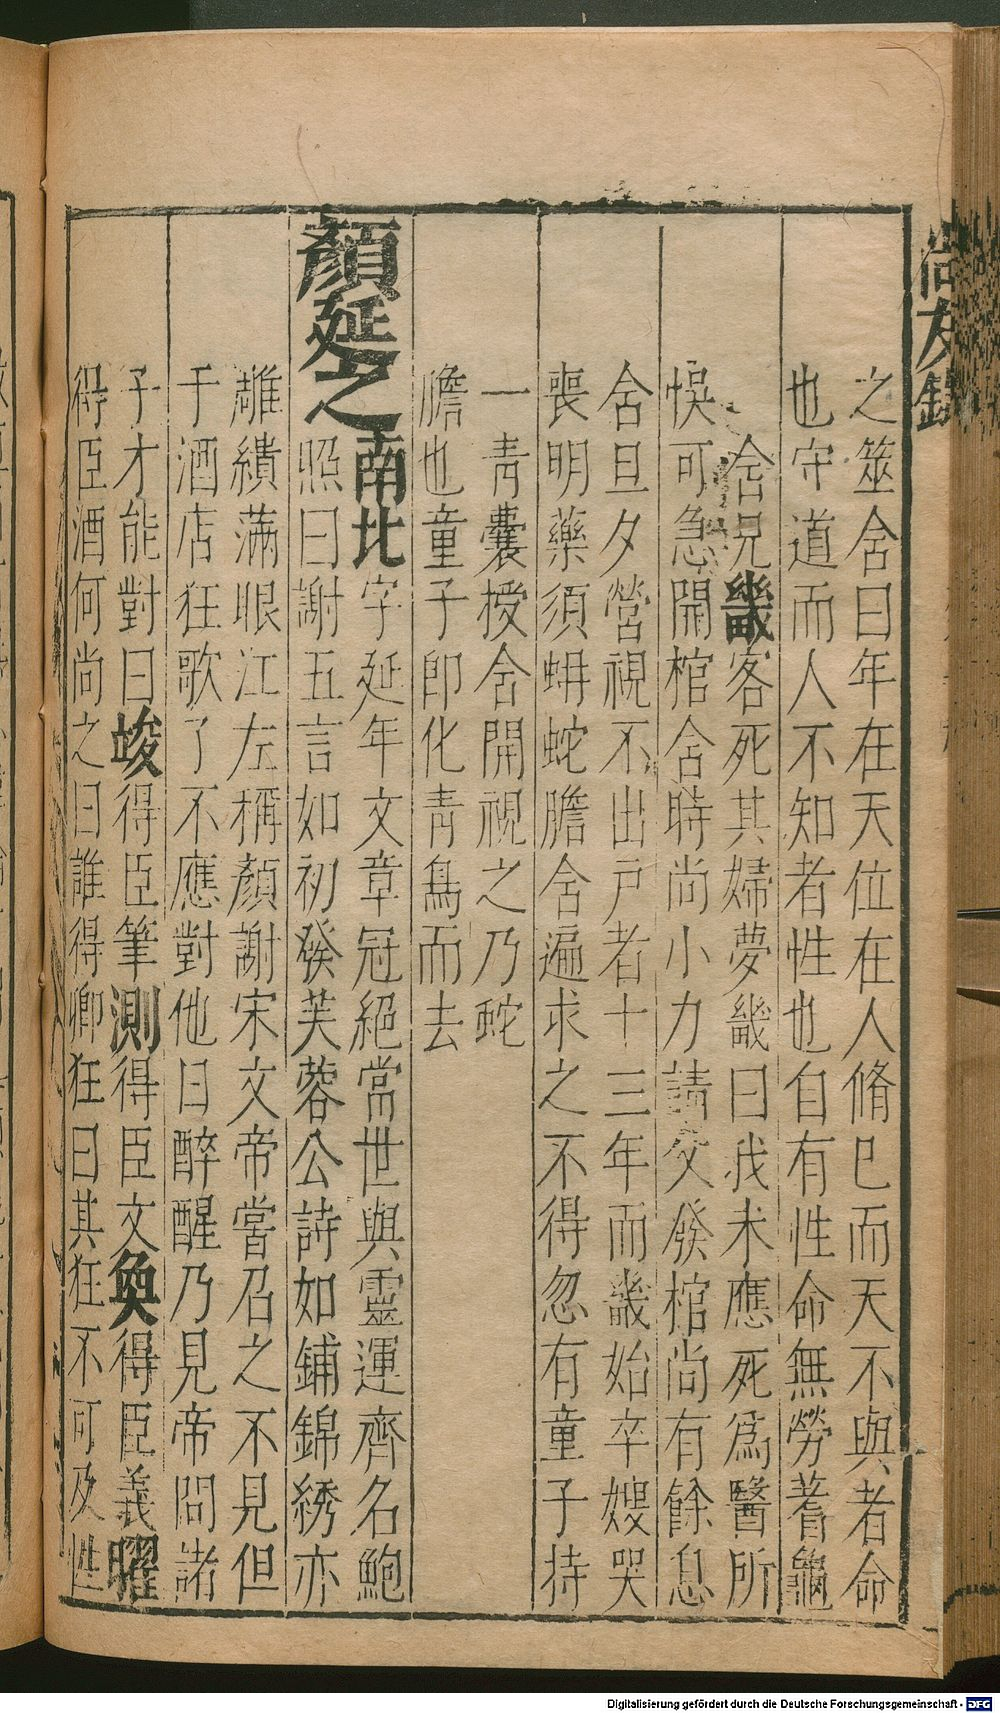 尚友錄
之筮含曰年在天位在人脩已而天不與者命
也守道而人不知者性也自有性命無勞蓍龜
含兄畿客死其婦夢畿曰我未應死爲醫所
悞可急開棺含時尚小力請父發棺尚有餘息
含旦夕營視不出戸者十三年而畿始卒嫂哭
喪明藥須蚺蛇膽含遍求之不得忽有童子持
一青囊授含開視之乃蛇
膽也童子卽化青鳥而去
顏延之南北字延年文章冠絕當世與靈運齊名鮑
照曰謝五言如初發芙蓉公詩如鋪錦綉亦
雕繢滿眼江左稱顏謝宋文帝嘗召之不見但
于酒店狂歌了不應對他日醉醒乃見帝問諸
子才能對曰竣得臣筆測得臣文㚟得臣義曜
得臣酒何尚之曰誰得卿狂曰其狂不可及性
Digitalisierung gefördert durch die Deutsche Forschungsgemeinschaft - DFG